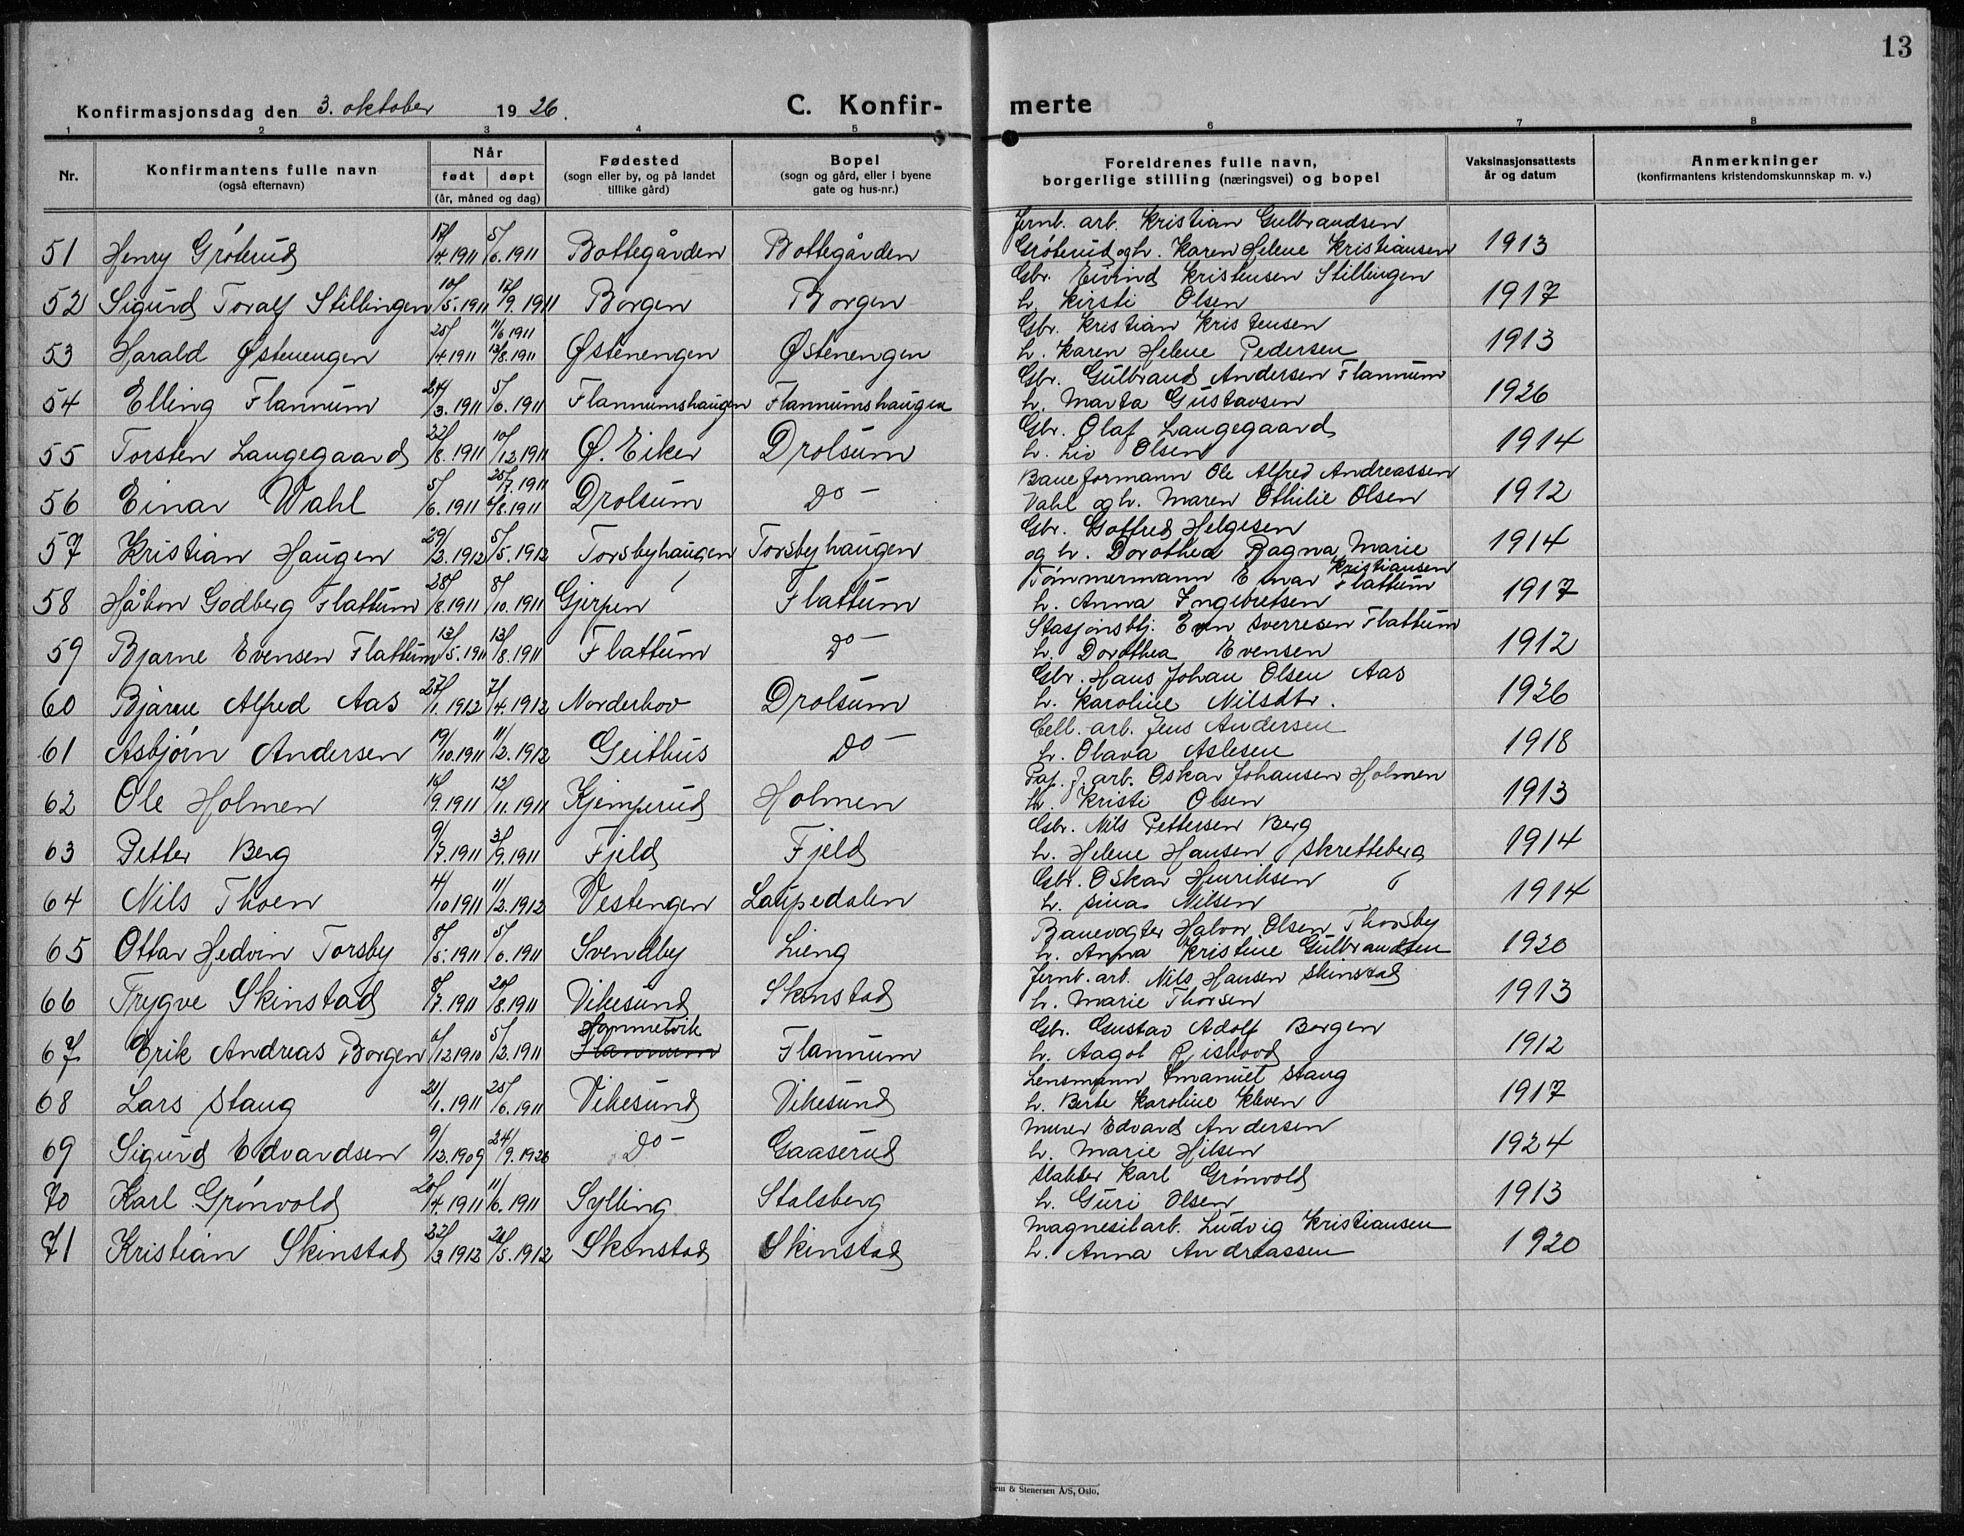 13
Konfirmasjonsdag den 3. oktober 1926.
C. Konfirmerte
1 2 3 4 5 6 7 8
Nr.
Konfirmantens fulle navn
(også efternavn)
Når
født døpt
(år, måned og dag)
Fødested
(sogn eller by, og på landet
tillike gård)
Bopel
(sogn og gård, eller i byene
gate og hus-nr.)
Foreldrenes fulle navn,
borgerlige stilling (næringsvei) og bopel
Vaksinasjonsattests
år og datum
Anmerkninger
(konfirmantens kristendomskunnskap m. v.)
51 Henry Gróterud 17/4.1911 5/6.1911 Bottegården Bottegården Jernb. arb. Kristian Gulbrandsen
Gróterud og h. Karen Helene Kristiansen 1913
52 Sigurd Toralf Stillingen 10/5.1911 17/9.1911 Borgen Borgen Gbr. Eivind Kristensen Stillingen
h. Kirsti Olsen 1917
53 Harald Østenengen 25/4.1911 11/6 1911 13/8.1911 Østenengen Østenengen Gbr. Kristian Kristensen
h. Karen Helene Pedersen 1913
54 Elling Flannum 24/3.1911 5/6.1911 Flannumshaugen Flannumshaugen Gbr. Gulbrand Andersen Flannum
h. Marta Gustavsen 1926
55 Torsten Langegaard 22/8.1911 10/12.1911 Ø. Eiker Drolsum Gbr. Olaf Langegaard
h. Liv Olsen 1914
56 Einar Wahl 5/6.1911 25/7.1911 6/8.1911 Drolsum Do - Baneformann Ole Alfred Andreassen
Vahl og h. Maren Othilie Olsen 1912
57 Kristian Haugen 29/2.1912 5/5.1912 Torsbyhaugen Torsbyhaugen Gbr. Gotfred Helgesen
og h. Dorothea Ragna Marie Kristiansen 1914
58 Håkon Godberg Flattum 28/8.1911 8/10.1911 Gjerpen Flattum Tömmermann Einar Flattum
h. Anna Ingebretsen 1917
59 Bjarne Evensen Flattum 13/5.1911 13/8.1911 Flattum Do - Stasjonsbtj. Even Sverresen Flattum
h. Dorothea Evensen 1912
60 Bjarne Alfred Aas 27/1.1912 7/4.1912 Norderhov Drolsum Gbr. Hans Johan Olsen Aas
h. Karoline Nilsdtr. 1926
61 Asbjørn Andersen 19/10.1911 11/2.1912 Geithus Do - Cell. arb. Jens Andersen
h. Olava Aslesen 1918
62 Ole Holmen /9.1911 12/11.1911 Kjemperud Holmen Pap. f. arb. Oskar Johansen Holmen
h. Kristi Olsen 1913
63 Petter Berg 9/7.1911 3/9.1911 Fjeld Fjeld Gbr. Nils Pettersen Berg
h. Helene Hansen Skretteberg 1914
64 Nils Thoen 4/10 1911 11/2.1912 Vestengen Laupedalen Gbr. Oskar Henriksen
h. Sina Nilsen 1914
65 Ottar Hedvin Torsby 8/5.1911 5/6.1911 Svendby Lieng Banevogter Halvor Olsen Thorsby
h. Anna Kristine Gulbrandsen 1920
66 Trygve Skinstad 8/7.1911 20/8.1911 Vikesund Skinstad Jernb. arb. Nils Hansen Skinstad
h. Marie Thorsen 1913
67 Erik Andreas Borgen 6/12.1910 5/2.1911 Hommelvik Flannum Flannum Gbr. Gustav Adolf Borgen
h. Aagot Rishovd 1912
68 Lars Staug 21/1.1911 25/6.1911 Vikesund Vikesund Lensmann Emanuel Staug
h. Berte Karoline Kleven 1917
69 Sigurd Edvardsen 9/12.1909 24/9.1926 Do - Gaaserud Murer Edvard Andersen
h. Marie Hilsen 1924
70 Karl Grønvold 20/4.1911 11/6.1911 Sylling Stalsberg Slakter Karl Grønvold
h. Guri Olsen 1913
71 Kristian Skinstad 22/3.1912 /5.1912 Skinstad Skinstad Magnesitarb. Ludvig Kristiansen
h. Anna Andreassen 1920
Sem & Stenersen A/S, Oslo.